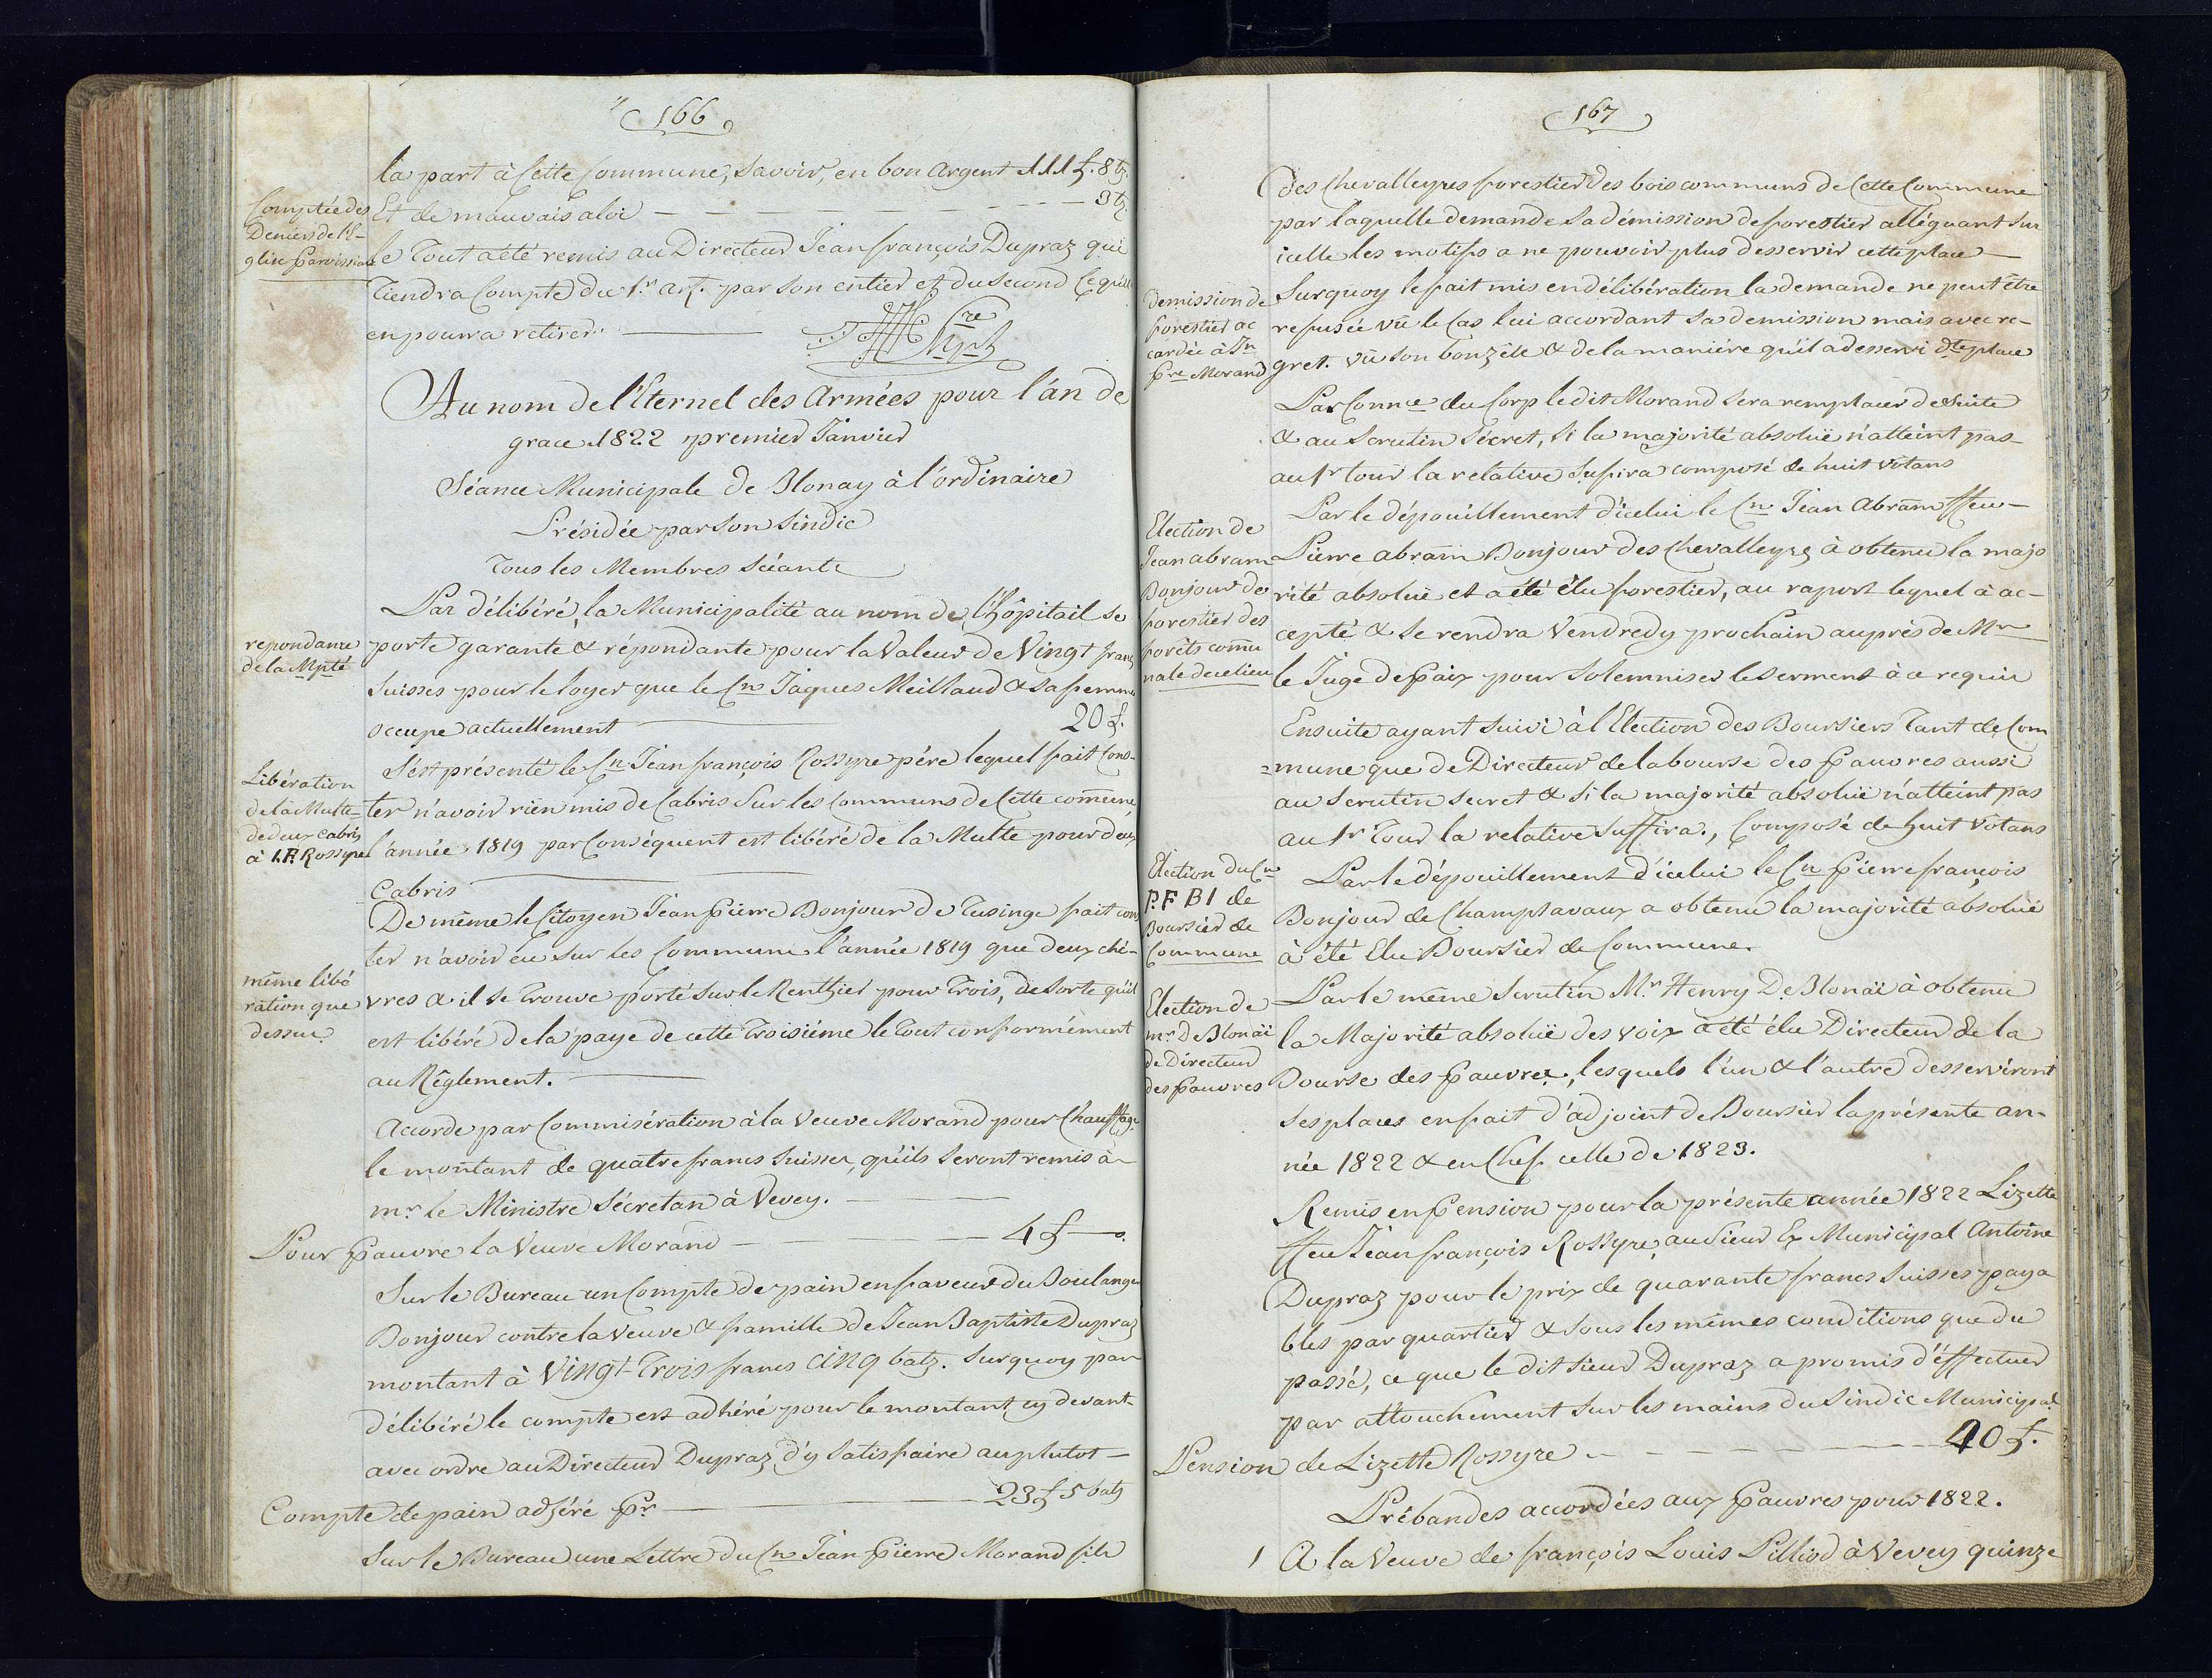 166
la part à Cette Commune, Savoir, en bon Argent 111 f. 8 bz.
Comptée des
Deniers de l'E-
glise Paroissiale
Et de mauvais aloi — — — — — 3 bz.
le Tout a été remis au Directeur Jean françois Dupraz qui
Tiendra Compte du 1.r art. par son entier et du Second Ce qu'il
en pourra retirer.
Au nom de l'Eternel des Armées pour l'an de
grace 1822 premier Janvier
Séance Municipale de Blonay à l'ordinaire
Présidée par Son Sindic
Tous les Membres Séants
Par délibéré, la Municipalité au nom de l'hôpitail se
repondance
de la Mpté
porte garante & répondante pour la Valeur de Vingt francs
Suisses pour le loyer que le Cn Jaques Meillaud & sa femme
occupe actuellement — 20 f.
S'est présenté le Cn Jean françois Rossyre pére lequel fait Cons-
Libération
de la Multe
de deux Cabris
à J. F. Rossyre
ter n'avoir rien mis de Cabris Sur les Communs de Cette comune,
l'année 1819 par Conséquent est libéré de la Multe pour deux
Cabris
De même le Citoyen Jean Pierre Bonjour de Tusinge fait cons
ter n'avoir éu sur les Commun l'année 1819 que deux ché-
même libé
ration que
dessus
vres & il se trouve porté sur le Renthier pour Trois, de Sorte qu'il
est libéré de la paye de cette Troisiéme le Tout conformément
au Réglement.
Accorde par Commisération à la Veuve Morand pour Chauffage
le montant de quatre francs Suisses, qu'ils Seront remis à
mr le Ministre Sécretan à Vevey.
Pour Pauvre la Veuve Morand — — 4 f —.
Sur le Bureau un Compte de pain en faveur du Boulanger
Bonjour contre la Veuve & famille de Jean Baptiste Dupraz
montant à Vingt-Trois francs cinq batz. Surquoy par
délibéré le compte est adhéré pour le montant cy devant
avec ordre au Directeur Dupraz d'y Satisfaire au plutot —
Compte de pain adhéré Pr — 23 f 5 batz
Sur le Bureau une Lettre du Cn Jean Pierre Morand fils
167
des Chevalleyres forestier des bois communs de Cette Commune
par laquelle demande Sa démission de forestier alléguant Sur
icelle les motifs a ne pouvoir plus desservir cette place
Demission de
forestier ac
cordée à Jn
Pre Morand
Surquoy le fait mis en délibération la demande ne peut être
refusée vû le Cas lui accordant Sa demission mais avec re-
gret. vû Son bon zêle & de la maniére qu'il a desservi dte place
Par Conn.ce du Corp le dit Morand Sera remplacer de Suite
& au Scrutin Sécret, Si la majorité absolüe n'atteint pas
au 1r tour la relative Sufira composé de huit Votans
Par le dépouillement d'icelui le Cn Jean Abram ffeu
Election de
Jean abram
Bonjour de
forestier des
forêts comu
nale de ce lieu
Pierre Abram Bonjour des Chevalleyres à obtenu la majo
rité absolue et a été élu forestier, au raport lequel à ac-
cepté & se rendra Vendredy prochain auprès de Mr
le Juge de Paix pour Solemniser le Serment à ce requis
Ensuite ayant Suivi à l'Election des Boursiers Tant de Com
=mune que de Directeur de la bourse des Pauvres aussi
au Scrutin Secret & Si la majorité absolüe n'atteint pas
au 1r Tour la relative Suffira., Composé de huit Votans
Election du Cn
P. F. BJ de
Boursier de
Commune
Par le dépouillement d'icelui le Cn Pierre françois
Bonjour de Champtavaux a obtenu la majorité absolüe
à été Elu Boursier de Commune.
Election de
mr. De Blonäi
de Directeur
des Pauvres
Par le même Scrutin Mr. Henry De Blonäi à obtenu
la Majorité absolüe des voix a été élu Directeur de la
Bourse des Pauvres, lesquels l'un & l'autre desserviront
Ses places en fait d'adjoint de Boursier la présente an-
née 1822 & en Chef celle de 1823.
Remis en Pension pour la présente année 1822 Lizette
ffeu Jean françois Rossyre, au Sieur Ex Municipal Antoine
Dupraz pour le prix de quarante francs Suisses paya
bles par quartier & Sous les mêmes conditions que du
passé, ce que le dit Sieur Dupraz a promis d'éffectuer
par attouchement Sur les mains du Sindic Municipal
Pension de Lizette Rossyre — — — — 40 f.
Prébandes accordées aux Pauvres pour 1822.
1 A la Veuve de françois Louis Pilliod à Vevey quinze